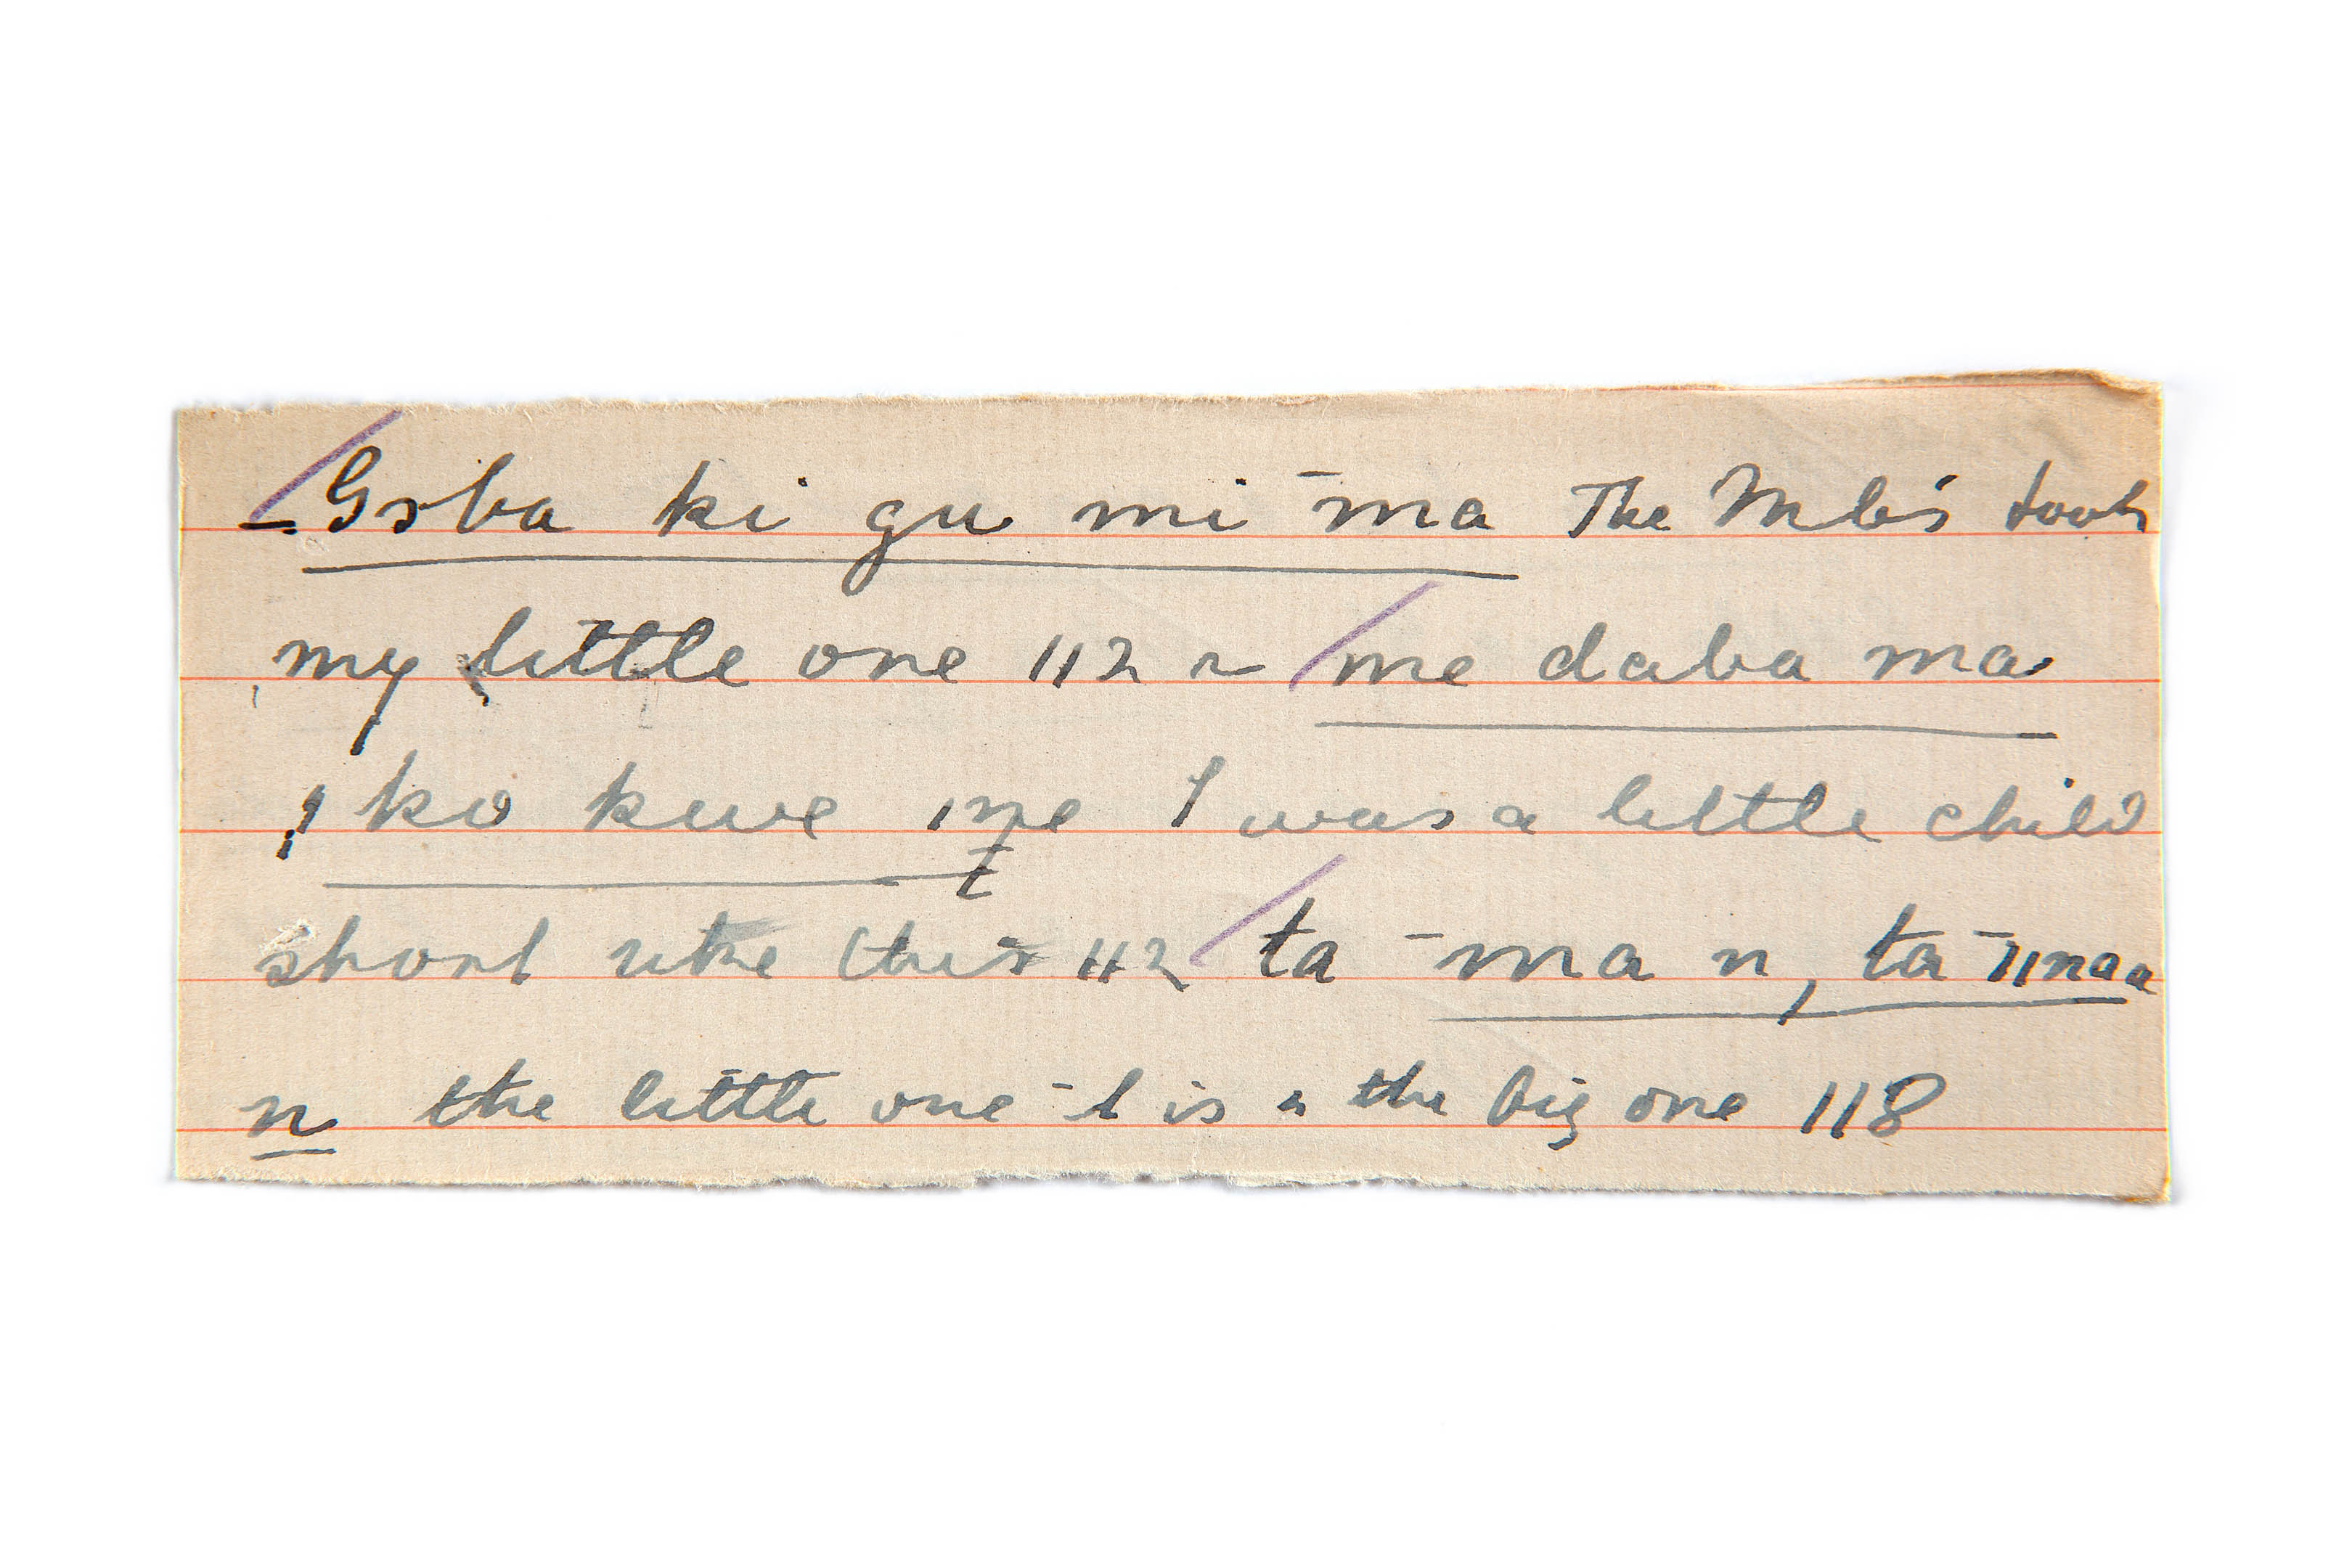 – Gɜba ki gu mi ̄ma The Mb's took
my little one 112 ~ me daba ma
ko kwe I was a little child
short like this 112 ta ̄ma n, ta ̄
n the little one -l is " the big one 118